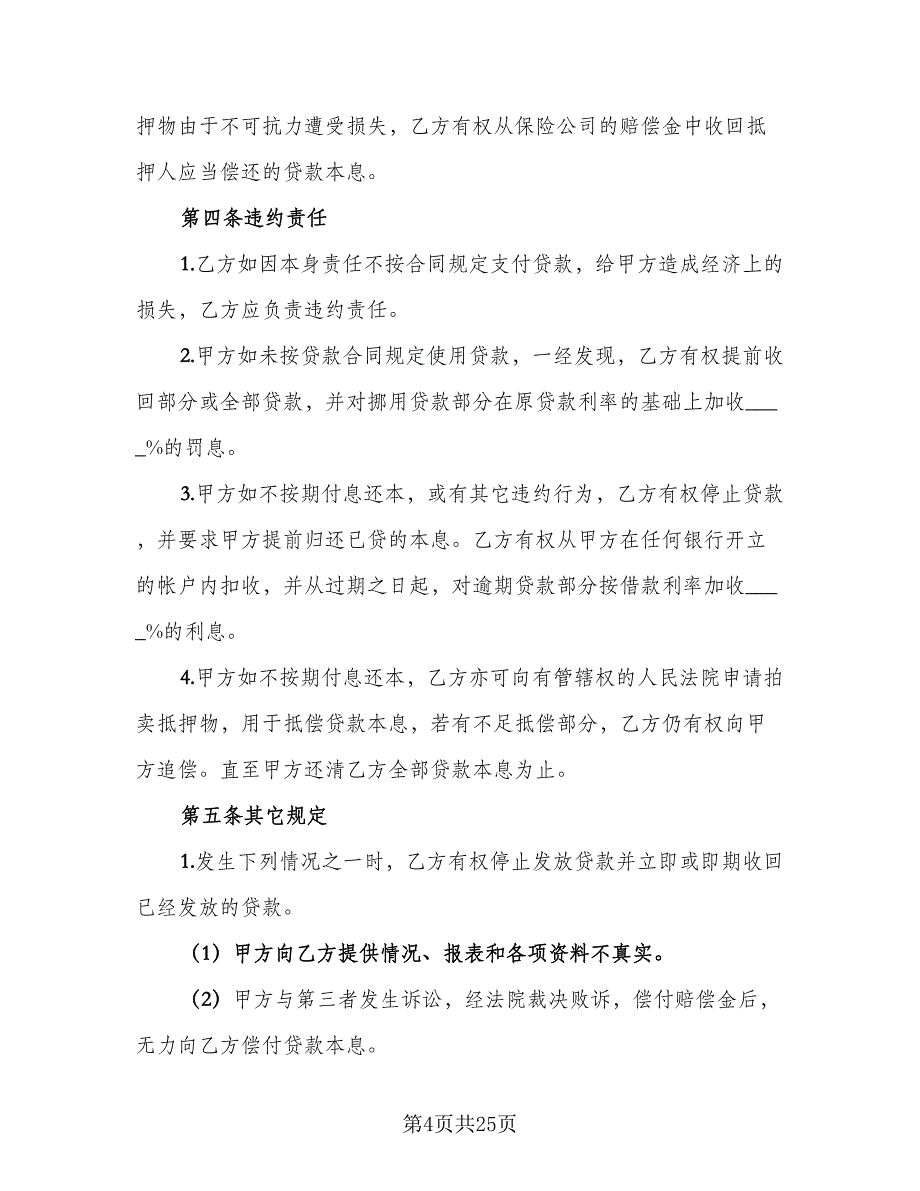 押物由于不可抗力遭受损失，乙方有权从保险公司的赔偿金中收回抵
押人应当偿还的贷款本息。
第四条违约责任
1.乙方如因本身责任不按合同规定支付贷款，给甲方造成经济上的
损失，乙方应负责违约责任。
2.甲方如未按贷款合同规定使用贷款，一经发现，乙方有权提前收
回部分或全部贷款，并对挪用贷款部分在原贷款利率的基础上加收___
_%的罚息。
3.甲方如不按期付息还本，或有其它违约行为，乙方有权停止贷款
，并要求甲方提前归还已贷的本息。乙方有权从甲方在任何银行开立
的帐户内扣收，并从过期之日起，对逾期贷款部分按借款利率加收___
_%的利息。
4.甲方如不按期付息还本，乙方亦可向有管辖权的人民法院申请拍
卖抵押物，用于抵偿贷款本息，若有不足抵偿部分，乙方仍有权向甲
方追偿。直至甲方还清乙方全部贷款本息为止。
第五条其它规定
1.发生下列情况之一时，乙方有权停止发放贷款并立即或即期收回
已经发放的贷款。
（1）甲方向乙方提供情况、报表和各项资料不真实。
（2）甲方与第三者发生诉讼，经法院裁决败诉，偿付赔偿金后，
无力向乙方偿付贷款本息。
第4页共25页